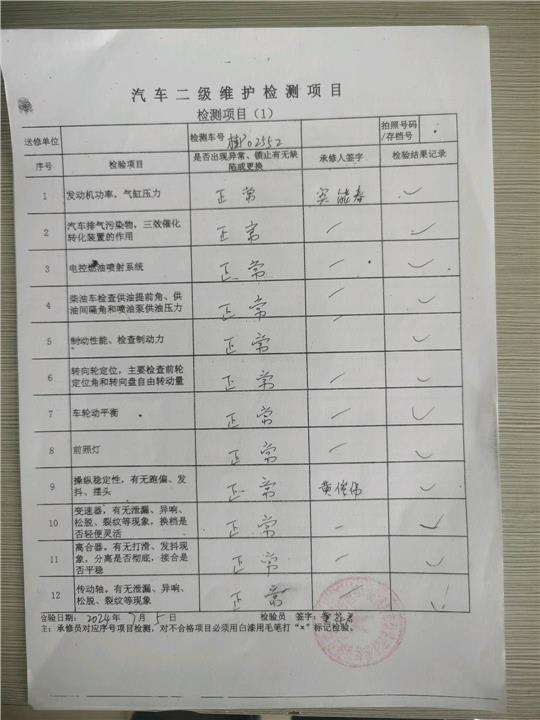 汽车二级维护检测项目
检测项目（1）
送修单位 检测车号 02552 拍照号码/存档号
序号 检验项目 是否出现异常、锁止有无缺陷或更换 承修人签字 检验结果记录
1 发动机功率，气缸压力 正常 ✓
2 汽车排气污染物，三效催化转化装置的作用 正常 ✓
3 电控燃油喷射系统 正常 ✓
4 柴油车检查供油提前角、供油间隔角和喷油泵供油压力 正常 ✓
5 制动性能、检查制动力 正常 ✓
6 转向轮定位，主要检查前轮定位角和转向盘自由转动量 正常 ✓
7 车轮动平衡 正常 ✓
8 前照灯 正常 ✓
9 操纵稳定性，有无跑偏、发抖、摆头 正常 ✓
10 变速器，有无泄漏、异响、松脱、裂纹等现象，换档是否轻便灵活 正常 ✓
11 离合器。有无打滑、发抖现象，分离是否彻底，接合是否平稳 正常 ✓
12 传动轴。有无泄漏、异响、松脱、裂纹等现象 正常 ✓
检验日期：2024年7月5日 检验员 签字：
主：承修员对应序号项目检测，对不合格项目必须用白漆用毛笔打“×”标记检验。